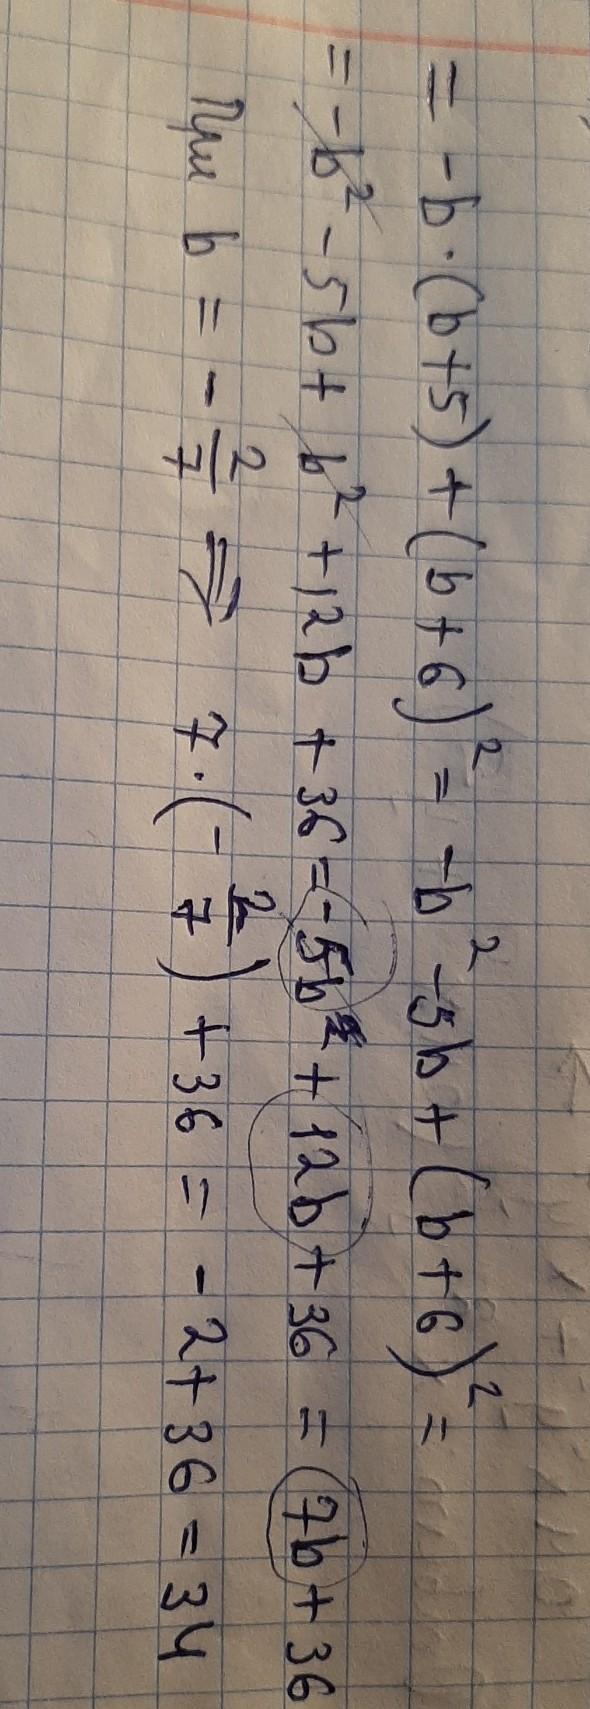 = -b·(b+5)+(b+6)² = -b²-5b+(b+6)² =
= -b²-5b+b²+12b+36=-5b+12b+36 = 7b+36
При b = -2/7 ⇒ 7·(-2/7)+36 = -2+36=34